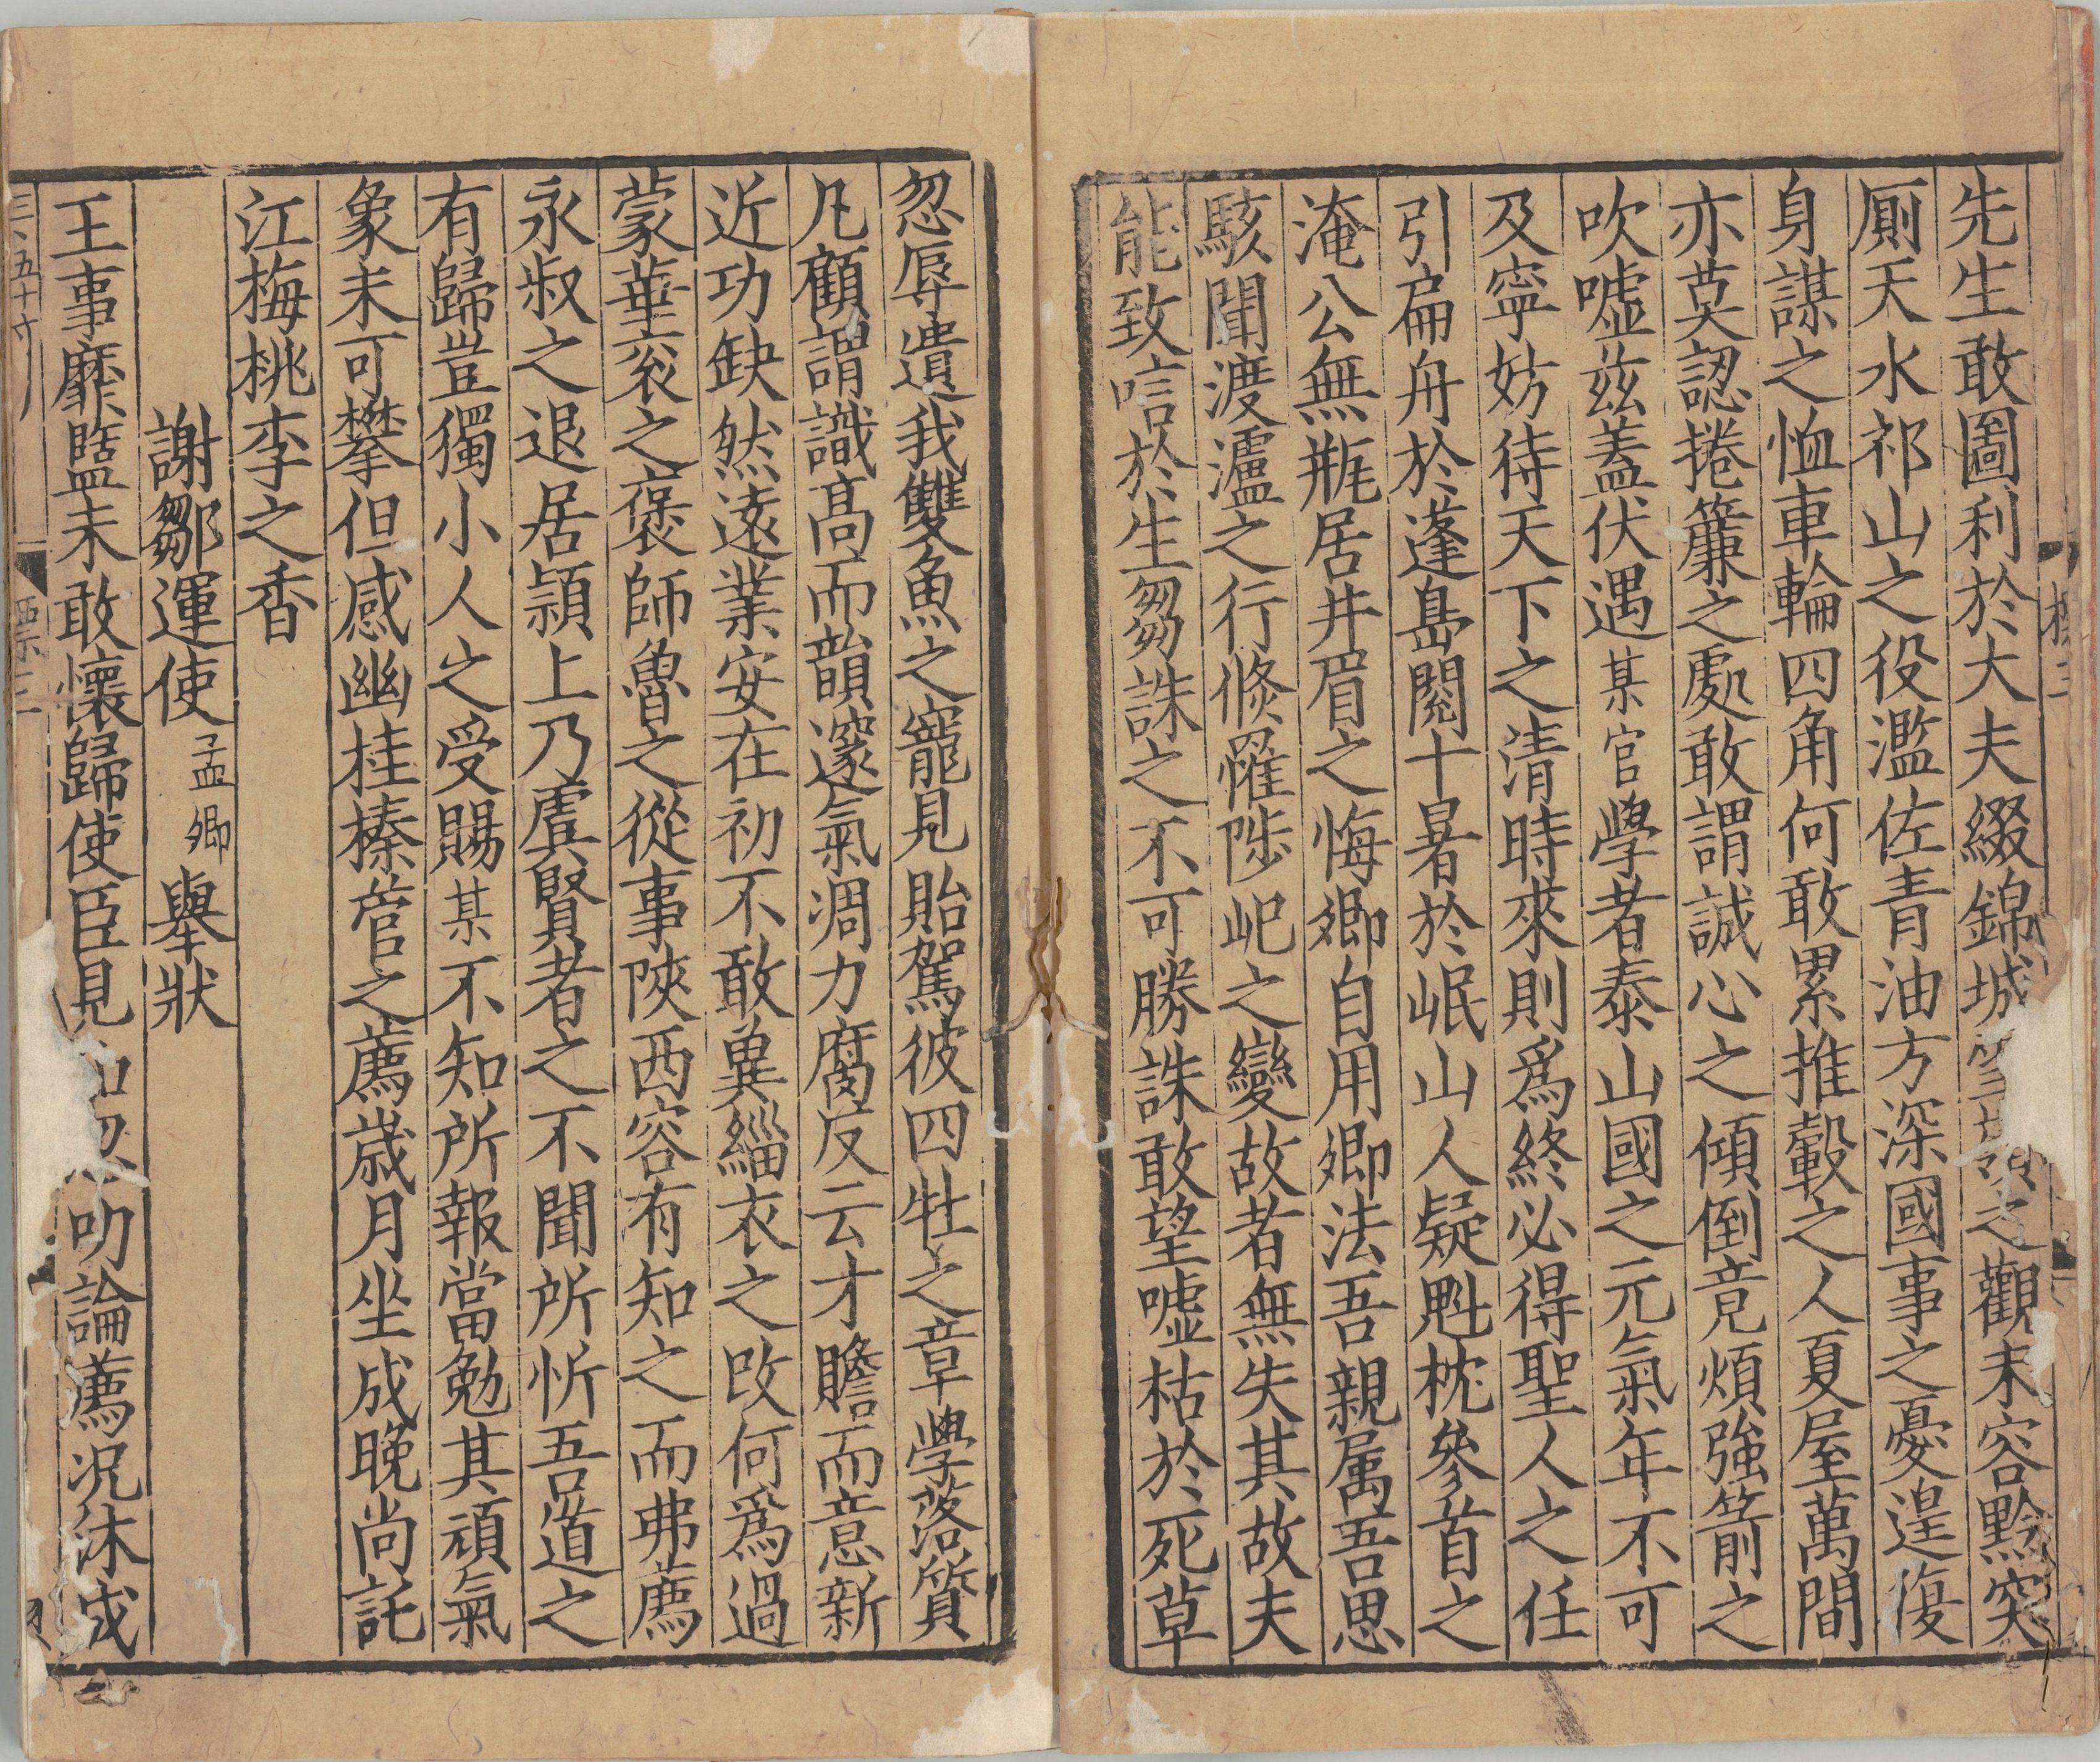 先生敢圖利於大夫綴錦城之觀未容黔突
廁天水祁山之役濫佐青油方深國事之憂遑復
身謀之恤車輪四角何敢累推轂之人夏屋萬間
亦莫認捲簾之處敢謂誠心之傾倒竟煩強箭之
吹噓茲蓋伏遇某官學者泰山國之元氣年不可
及寧妨待天下之清時來則爲終必得聖人之任
引扁舟於蓬島閱十暑於岷山人疑魁枕參首之
淹公無瓶居井眉之悔卿自用卿法吾親属吾思
駭聞渡瀘之行倐罹陟屺之變故者無失其故夫
能致唁於生芻誅之不可勝誅敢望噓枯於死草
忽辱遺我雙魚之寵見貽駕彼四牡之章學落質
凡顧謂識高而韻邃氣凋力腐反云才贍而意新
近功缺然遠業安在初不敢兾緇衣之改何爲過
蒙華衮之褒師魯之從事陝西容有知之而弗薦
永叔之退居潁上乃虞賢者之不聞所忻吾道之
有歸豈獨小人之受賜某不知所報當勉其頑氣
象未可攀但感幽桂榛菅之薦歲月坐成晚尚託
江梅桃李之香
謝鄒運使孟卿舉狀
王事靡盬未敢懷歸使臣見叨論薦况沐成